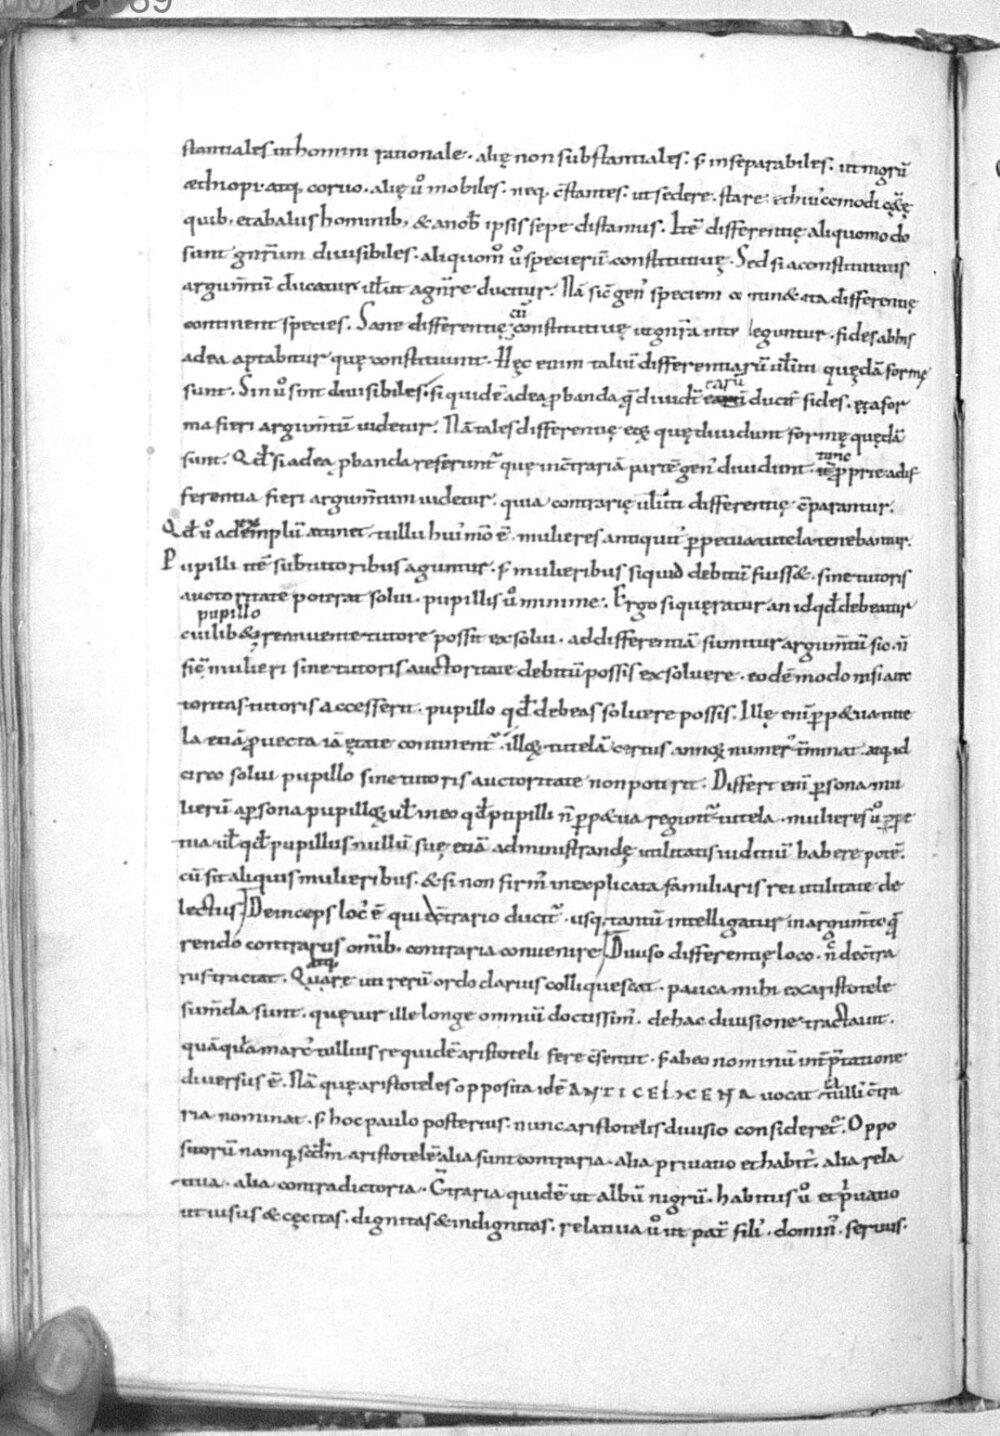 stantiales ut homini rationale. alię non substantiales. s̄ inseparabiles. ut nigrū
æthiopi. atq; coruo. alię ů mobiles. neq; c̄stantes. ut sedere. stare. & hui'cemodi
quib; et ab aliis hominib; & a nob̄ ipsis sepe distamus. Itē differentię aliquomodo
sunt gn̄rum diuisibiles. aliquom̊ ů specierū constitutiuę. Sed si a constitutiuis
argum̄tū ducatur ut a gn̄re ducitur. Nā sic̄ gen' speciem continet ita differentię
continent species. Sane differentię cū constitutiuę ut gn̄ra intelleguntur. fides ab his
ad ea aptabitur quę constituunt. Hęc enim taliū differentiarū uel̄uti quędā formę
sunt. Sin ů sint diuisibiles. si quidē ad ea ꝓbanda q̄ diuidūt earū ducit̄ fides. et a for
ma fieri argum̄tū uidetur. Nā tales differentię eę quę diuidunt formę quędā
sunt. Qd̄ si ad ea ꝓbanda referunt̄ quę in c̄trariā partē gen' diuidunt. tunc ꝓprie a dif
ferentia fieri argum̄tum uidetur. quia contrarię uel̄uti differentię c̄parantur.
Qd̄ ů ad exemplū attinet tullii hui'modi ē. mulieres antiquit' ꝑpetua tutela tenebantur.
Pupilli itē sub tutoribus aguntur. s̄ mulieribus siquid debitū fuiss&. sine tutoris
auctoritate poterat solui. pupillis ů minime. Ergo si quęratur an id qd̄ debeatur
pupillo
cuilib& renuente tutore possit exsolui. ad differentiā sumitur argum̄tū sic. n̄
sic̄ mulieri sine tutoris auctoritate debitū possis exsoluere. eodē modo nisi auc
toritas tutoris accesserit. pupillo qd̄ debeas soluere possis. Illę eni ꝑp&ua tute
la etiā ꝓuecta iā ętate continent̄. illoꝝ tutelā certus annoꝝ numer' t̄minat. atq; id
circo solui pupillo sine tutoris auctoritate non poterit. Differt eni ꝑsona mu
lierū a ꝑsona pupilloꝝ ut̄ in eo qd̄ pupilli n̄ ꝑp&ua regunt̄ tutela. mulieres ů ꝑpe
tua. ut̄ qd̄ pupillus nullū suę etiā administrandę utilitatis iuditiū habere potē.
cū sit aliquis mulieribus. & si non firm' in explicata familiaris rei utilitate de
lectus. Deinceps loc' ē qui e c̄trario ducit̄. usq; tantū intelligatur in argum̄to q̄
rendo contrarius omib; contraria conuenire. Diuiso differentię loco. n̄c de c̄tra
riis tractat. Quare uti rerū ordo clarius colliquescat. pauca mihi ex aristotele
sum̄da sunt. quę uir ille longe omniū doctissim'. de hac diuisione tractauit.
quāquā marc' tullius re quidē aristoteli fere c̄sentit. s̄ ab eo nominū int̄p̄tatione
diuersus ē. Nā quę aristoteles opposita idē ANTICEIJCENA uocat ea tulli' c̄tra
ria nominat. s̄ hoc paulo posterius. nunc aristotelis diuisio consideret̄. Oppo
sitorū namq; scd̄m aristotelē alia sunt contraria. alia priuatio et habit'. alia rela
tiua. alia contradictoria. C̄traria quidē ut albū nigrū. habitus ů et p̄uatio
ut uisus & cęcitas. dignitas & indignitas. relatiua ů ut pat̄ fili'. domin'. seruus.